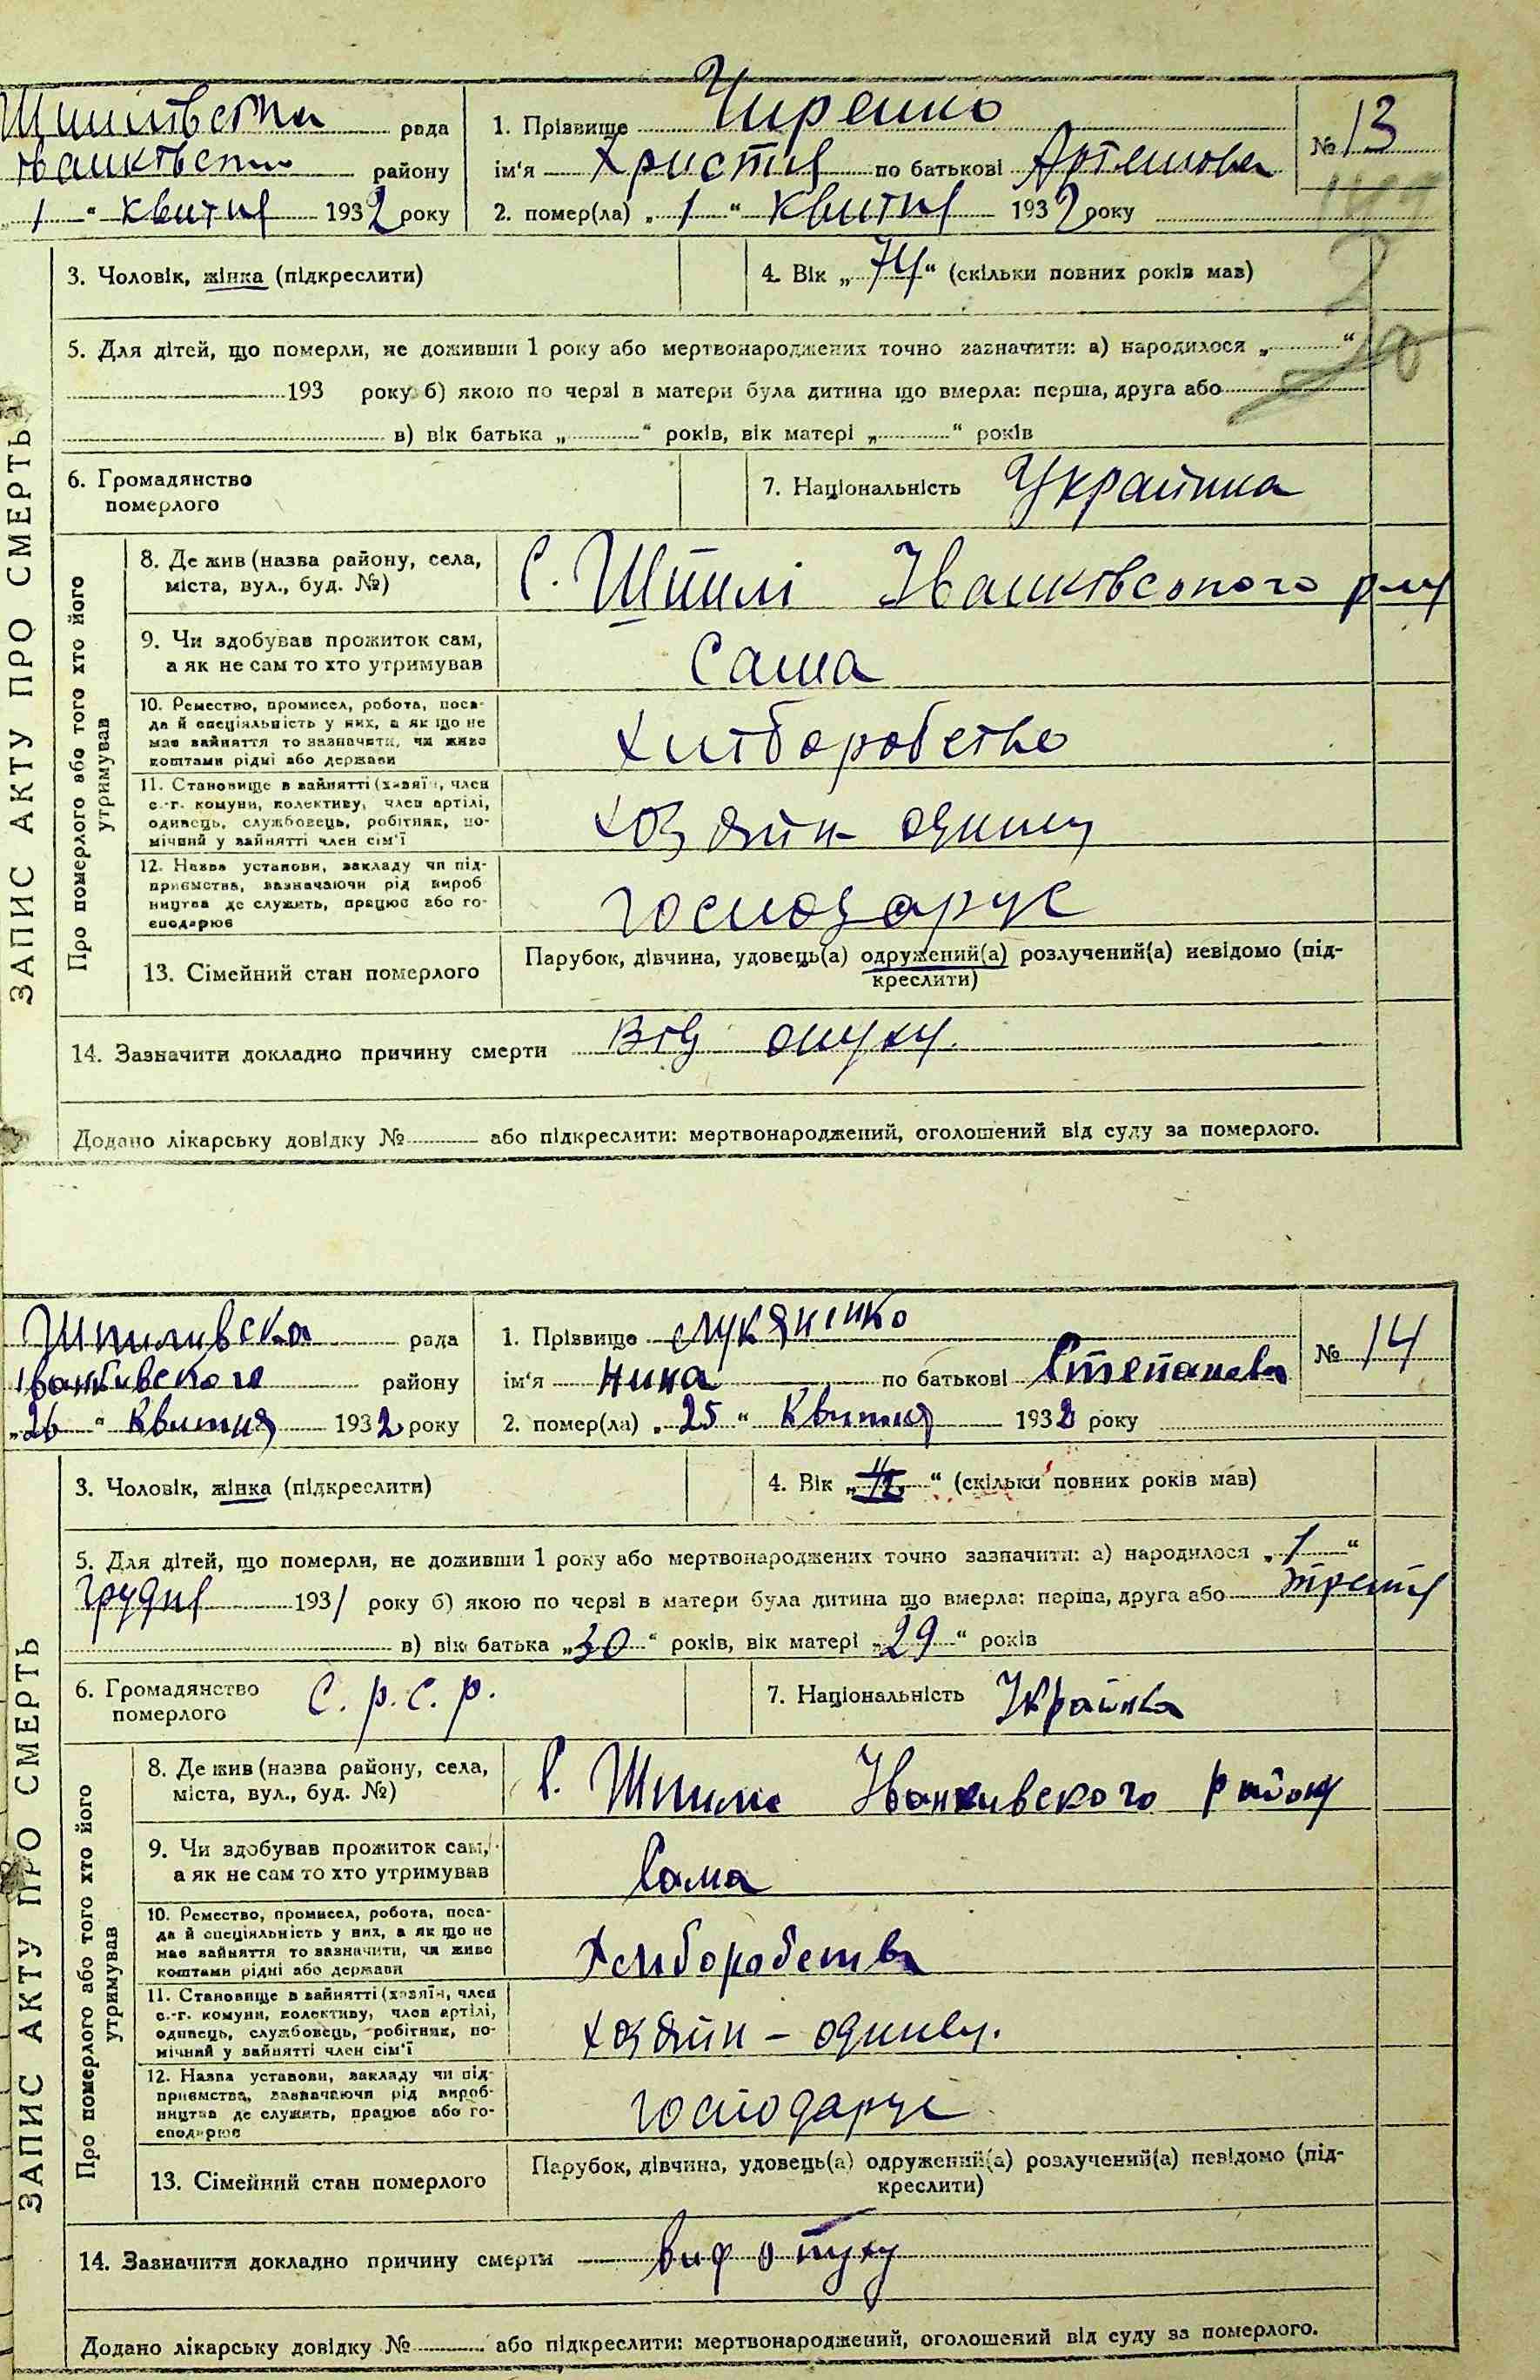 Шпилівська рада
Іванківського району
„ 1 “ квітня 1932 року
1. Прізвище Чиренко
ім'я Христя по батькові Артемовна
2. помер(ла) „ 1 “ квітня 1932 року
№ 13
3. Чоловік, жінка (підкреслити)
4. Вік „ 74 “ (скільки повних років мав)
5. Для дітей, що померли, не доживши 1 року або мертвонароджених точно зазначити: а) народилося „ “
193 року б) якою по черзі в матери була дитина що вмерла: перша, друга або
в) вік батька „ “ років, вік матері „ “ років
6. Громадянство
померлого
7. Національність Украинка
ЗАПИС АКТУ ПРО СМЕРТЬ
Про померлого або того хто його
утримував
8. Де жив (назва району, села,
міста, вул., буд. №)
с. Шпилі Іванковского р-ну
9. Чи здобував прожиток сам,
а як не сам то хто утримував
Сама
10. Ремество, промисел, робота, поса-
да й спеціяльність у них, а як що не
має зайняття то зазначити, чи живе
коштами рідні або держави
Хліборобство
11. Становище в зайнятті (хазяїн, член
с.-г. комуни, колективу, член артілі,
одинець, службовець, робітник, по-
мічний у зайнятті член сім'ї
хозяин одинец
12. Назва установи, закладу чи під-
приємства, зазначаючи рід вироб
ництва де служить, працює або го-
сподарює
господарує
13. Сімейний стан померлого
Парубок, дівчина, удовець(а) одружений(а) розлучений(а) невідомо (під-
креслити)
14. Зазначити докладно причину смерти Від опуху.
Додано лікарську довідку № або підкреслити: мертвонароджений, оголошений від суду за померлого.
Шпиливска рада
Іванкивского району
„ 26 “ Квитня 1932 року
1. Прізвище Лукяненко
ім'я Нина по батькові Степановна
2. помер(ла) „ 25 “ Квитня 1932 року
№ 14
3. Чоловік, жінка (підкреслити)
4. Вік „ “ (скільки повних років мав)
5. Для дітей, що померли, не доживши 1 року або мертвонароджених точно зазначити: а) народилося „ 1 “
грудня 1931 року б) якою по черзі в матери була дитина що вмерла: перша, друга або третя
в) вік батька „ 30 “ років, вік матері „ 29 “ років
6. Громадянство
померлого
С. р. с. р.
7. Національність Украинка
ЗАПИС АКТУ ПРО СМЕРТЬ
Про померлого або того хто його
утримував
8. Де жив (назва району, села,
міста, вул., буд. №)
с. Шпили Іванкивского району
9. Чи здобував прожиток сам,
а як не сам то хто утримував
Сама
10. Ремество, промисел, робота, поса-
да й спеціяльність у них, а як що не
має зайняття то зазначити, чи живе
коштами рідні або держави
Хлиборобства
11. Становище в зайнятті (хазяїн, член
с.-г. комуни, колективу, член артілі,
одинець, службовець, робітник, по-
мічний у зайнятті член сім'ї
хозяин – одинец.
12. Назва установи, закладу чи під-
приємства, зазначаючи рід вироб-
ництва де служить, працює або го-
сподарює
господарує
13. Сімейний стан померлого
Парубок, дівчина, удовець(а) одружений(а) розлучений(а) невідомо (під-
креслити)
14. Зазначити докладно причину смерти вид опуху
Додано лікарську довідку № або підкреслити: мертвонароджений, оголошений від суду за померлого.